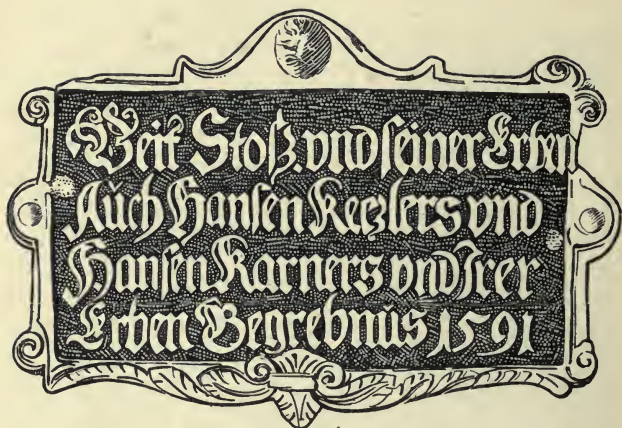 Veit Stoß. vnd seiner Erben
Auch Hansen Keczlers vnd
Hansen Karners vnd Irer
Erben Begrebnüs 1591